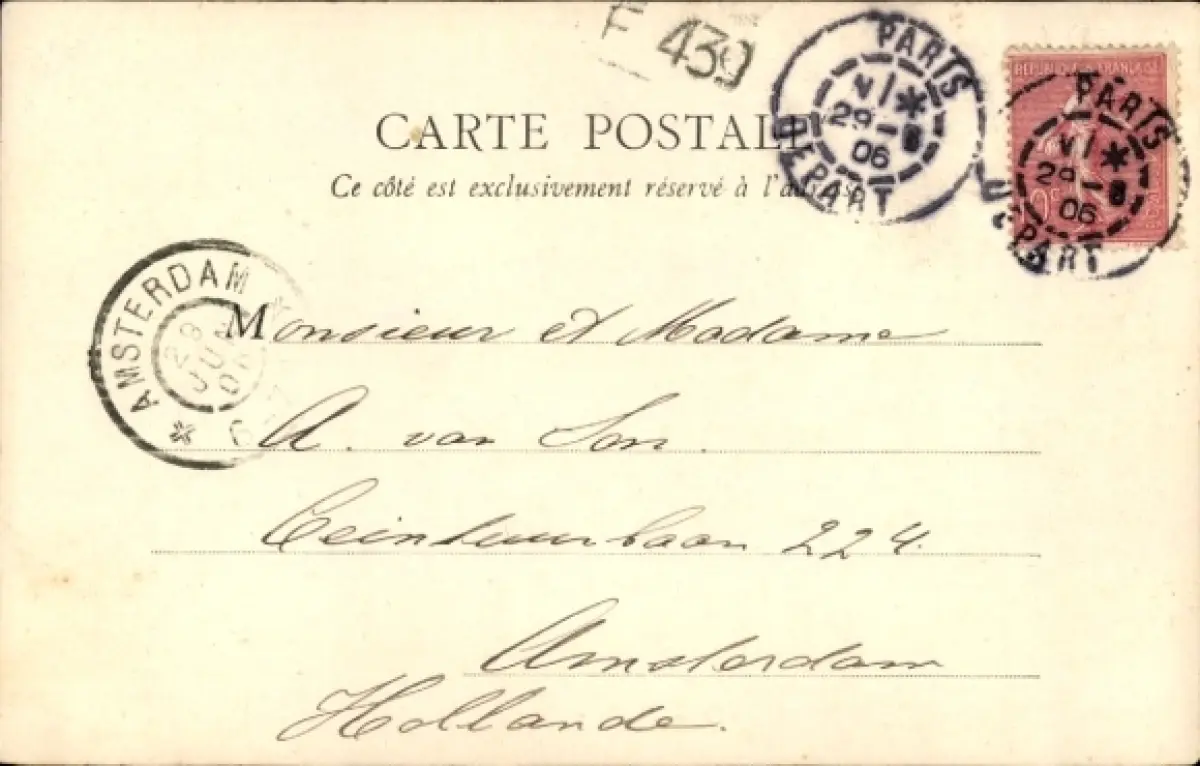 F 439
CARTE POSTALE
Ce côté est exclusivement réservé à l'adresse
PARIS
VI *
29 - 6
06
DEPART
REPUBLIQUE FRANÇAISE
PARIS
VI *
29 - 6
06
DEPART
AMSTERDAM
Monsieur et Madame
A. van Son.
Ceintuurbaan 224.
Amsterdam
Hollande.